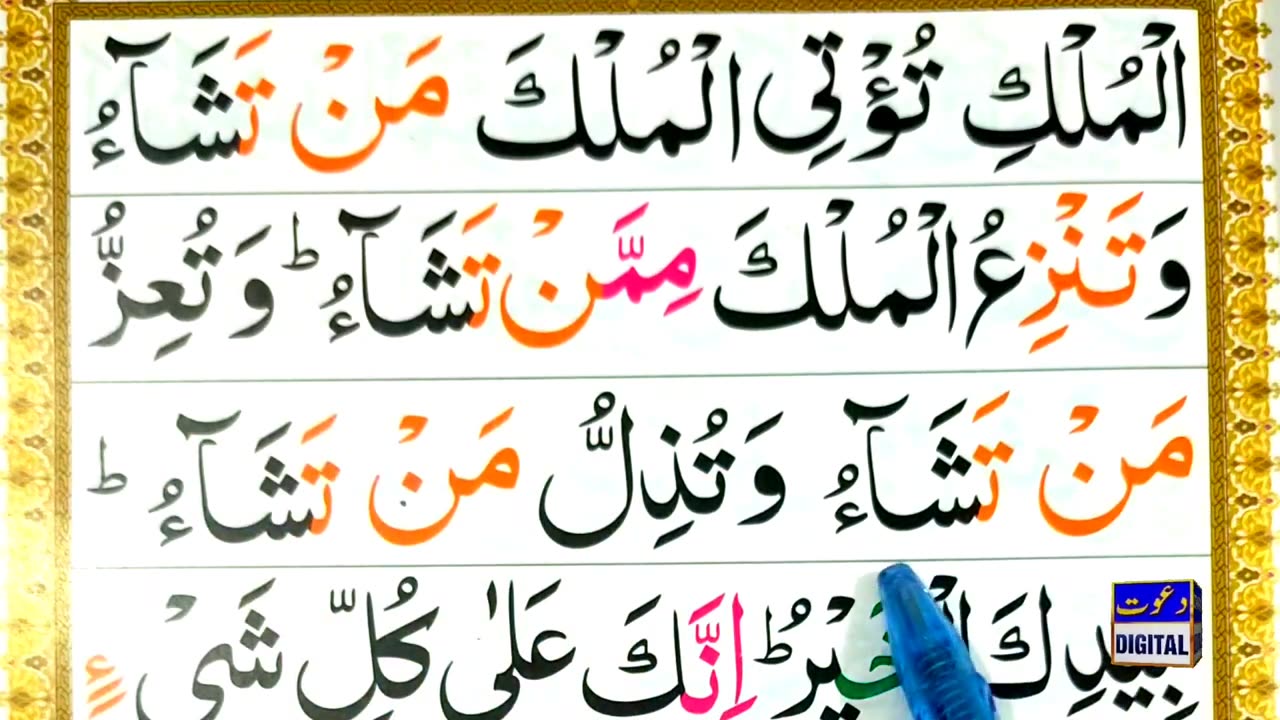 الْمُلْكِ تُؤْتِى الْمُلْكَ مَنْ تَشَآءُ
وَتَنْزِعُ الْمُلْكَ مِمَّنْ تَشَآءُ ؕ وَ تُعِزُّ
مَنْ تَشَآءُ وَ تُذِلُّ مَنْ تَشَآءُ ؕ
بِيَدِكَ الْخَيْرُ ؕ اِنَّكَ عَلٰى كُلِّ شَىْءٍ
دعوت
DIGITAL